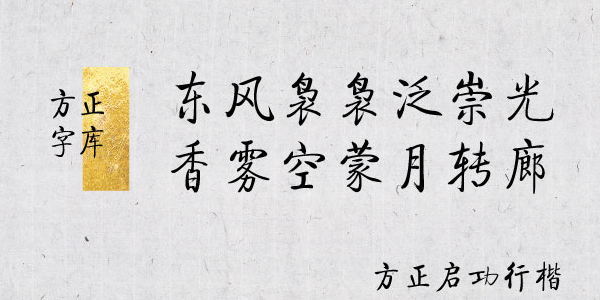 方正
字库
东风袅袅泛崇光
香雾空蒙月转廊
方正启功行楷